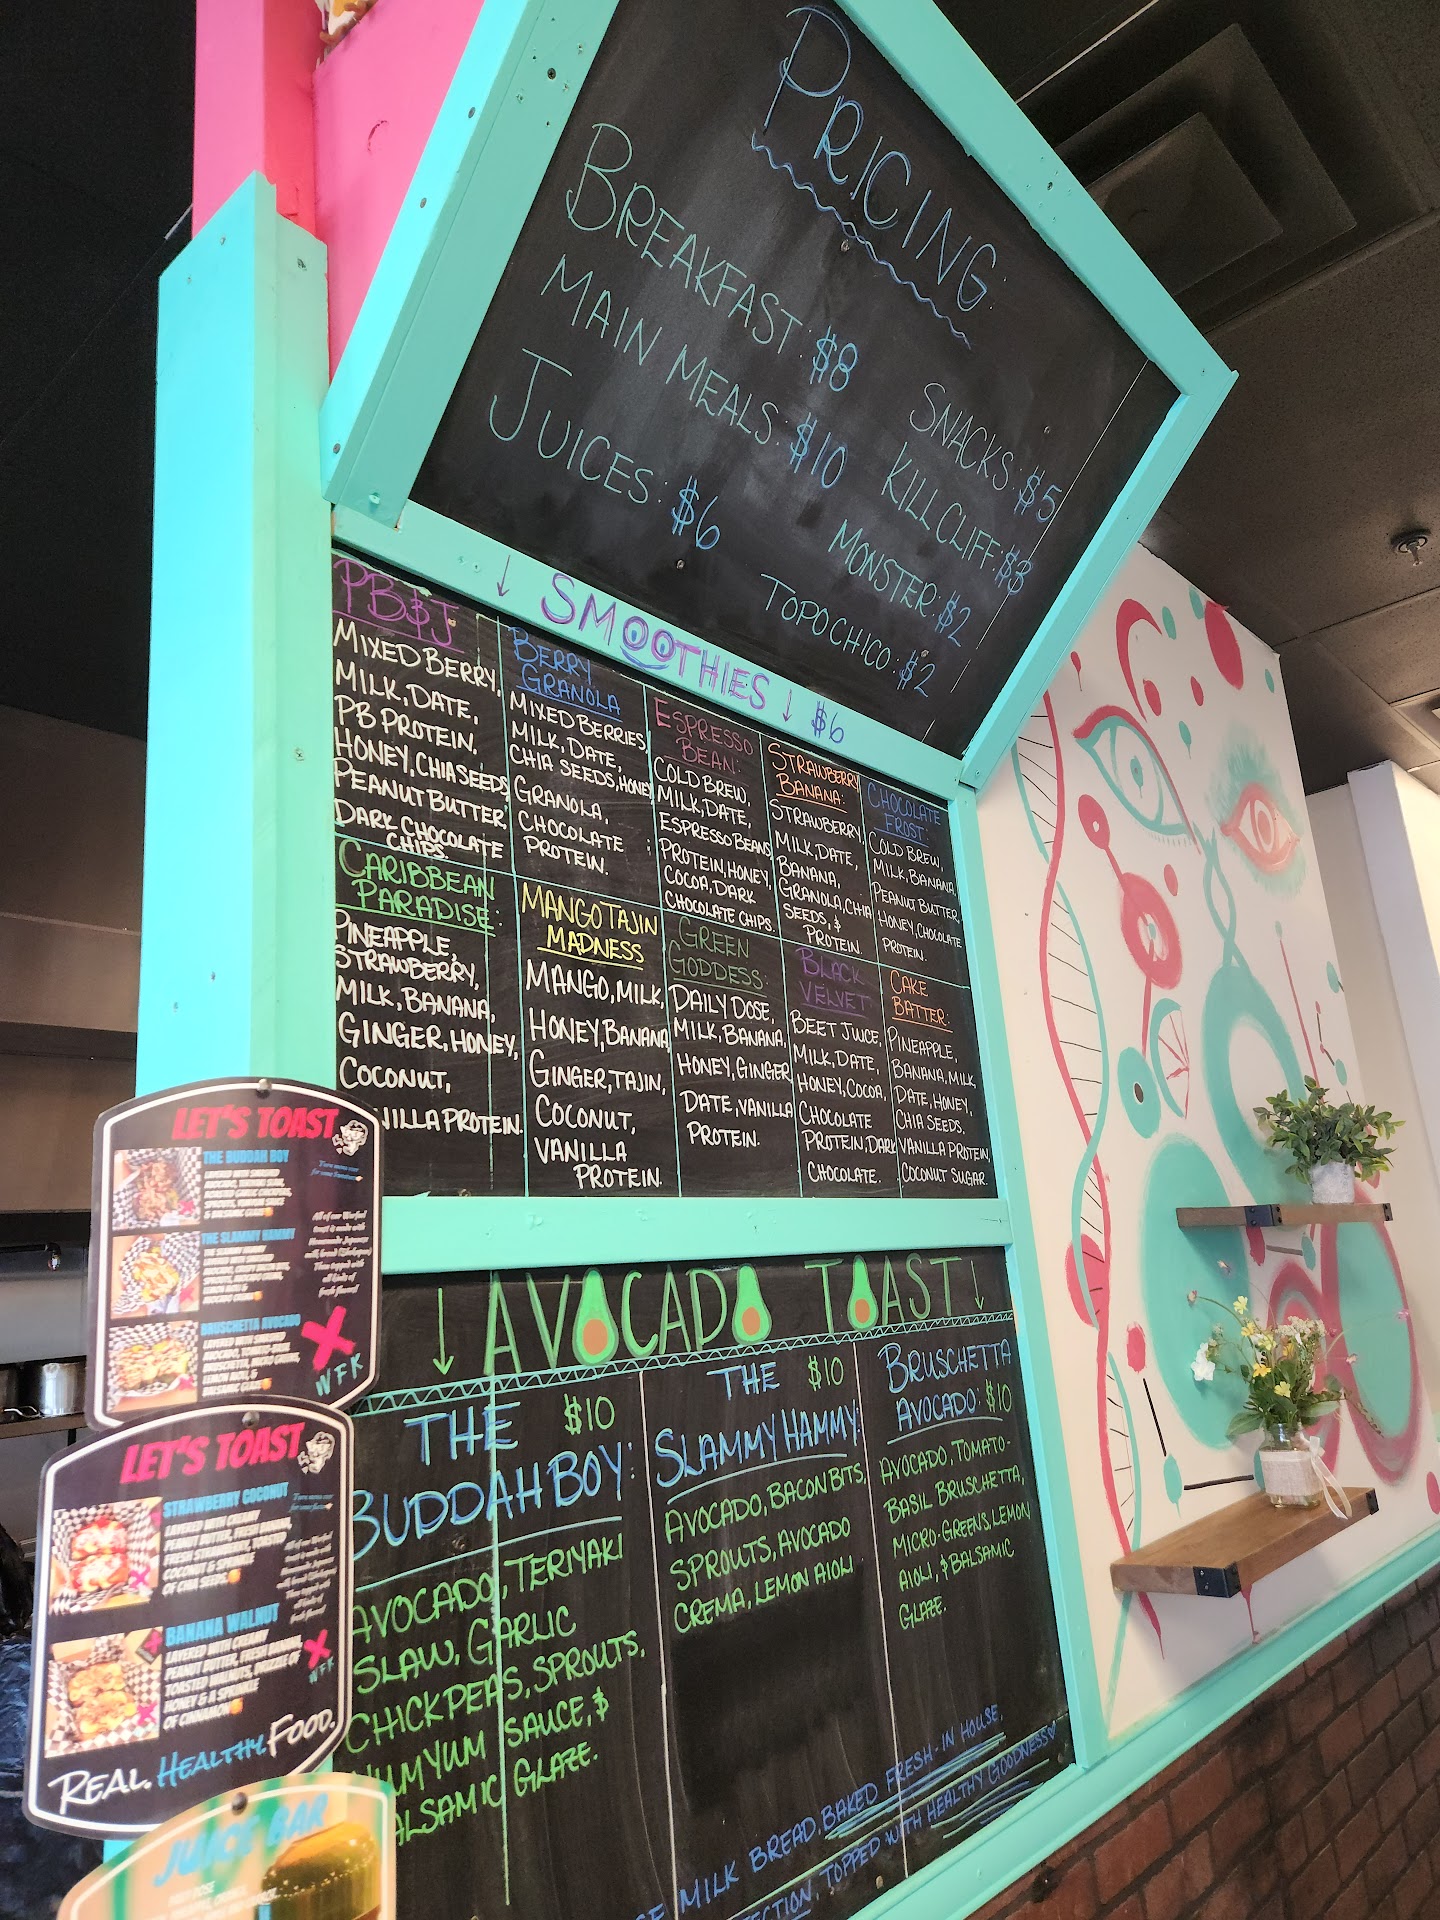 PRICING:
BREAKFAST: $8
MAIN MEALS: $10
JUICES: $6
SNACKS: $5
KILL CLIFF: $3
MONSTER: $2
TOPOCHICO: $2
↓ SMOOTHIES ↓ $6
PB&J
MIXED BERRY,
MILK, DATE,
PB PROTEIN,
HONEY, CHIA SEEDS,
PEANUT BUTTER,
DARK CHOCOLATE
CHIPS.
BERRY
GRANOLA
MIXED BERRIES,
MILK, DATE,
CHIA SEEDS, HONEY
GRANOLA,
CHOCOLATE
PROTEIN.
ESPRESSO
BEAN:
COLD BREW,
MILK, DATE,
ESPRESSO BEANS
PROTEIN, HONEY,
COCOA, DARK
CHOCOLATE CHIPS.
STRAWBERRY
BANANA:
STRAWBERRY,
MILK, DATE,
BANANA,
GRANOLA, CHIA
SEEDS, &
PROTEIN.
CHOCOLATE
FROST:
COLD BREW,
MILK, BANANA,
PEANUT BUTTER,
HONEY, CHOCOLATE
PROTEIN.
CARIBBEAN
PARADISE:
PINEAPPLE,
STRAWBERRY,
MILK, BANANA,
GINGER, HONEY,
COCONUT,
NILLA PROTEIN.
MANGO TAJIN
MADNESS
MANGO, MILK,
HONEY, BANANA
GINGER, TAJIN,
COCONUT,
VANILLA
PROTEIN.
GREEN
GODDESS:
DAILY DOSE,
MILK, BANANA,
HONEY, GINGER
DATE, VANILLA
PROTEIN.
BLACK
VELVET
BEET JUICE,
MILK, DATE,
HONEY, COCOA,
CHOCOLATE
PROTEIN, DARK
CHOCOLATE.
CAKE
BATTER:
PINEAPPLE,
BANANA, MILK,
DATE, HONEY,
CHIA SEEDS,
VANILLA PROTEIN,
COCONUT SUGAR.
↓ AVOCADO TOAST ↓
THE $10
BUDDAH BOY:
AVOCADO, TERIYAKI
SLAW, GARLIC
CHICKPEAS, SPROUTS,
YUM YUM SAUCE, &
BALSAMIC GLAZE.
THE $10
SLAMMY HAMMY:
AVOCADO, BACON BITS,
SPROUTS, AVOCADO
CREMA, LEMON AIOLI
BRUSCHETTA
AVOCADO: $10
AVOCADO, TOMATO-
BASIL BRUSCHETTA,
MICRO-GREENS, LEMON
AIOLI, & BALSAMIC
GLAZE.
MILK BREAD, BAKED FRESH-IN HOUSE,
TOPPED WITH HEALTHY GOODNESS
LET'S TOAST
THE BUDDAH BOY
THE SLAMMY HAMMY
BRUSCHETTA AVOCADO
WFK
LET'S TOAST
STRAWBERRY COCONUT
LAYERED WITH CREAMY
PEANUT BUTTER, FRESH
FRESH STRAWBERRY, TOASTED
COCONUT & A SPRINKLE
OF CHIA SEEDS
BANANA WALNUT
LAYERED WITH CREAMY
PEANUT BUTTER, FRESH BANANA,
TOASTED WALNUTS, DRIZZLE OF
HONEY & A SPRINKLE
OF CINNAMON
WFK
REAL. HEALTHY. FOOD.
JUICE BAR